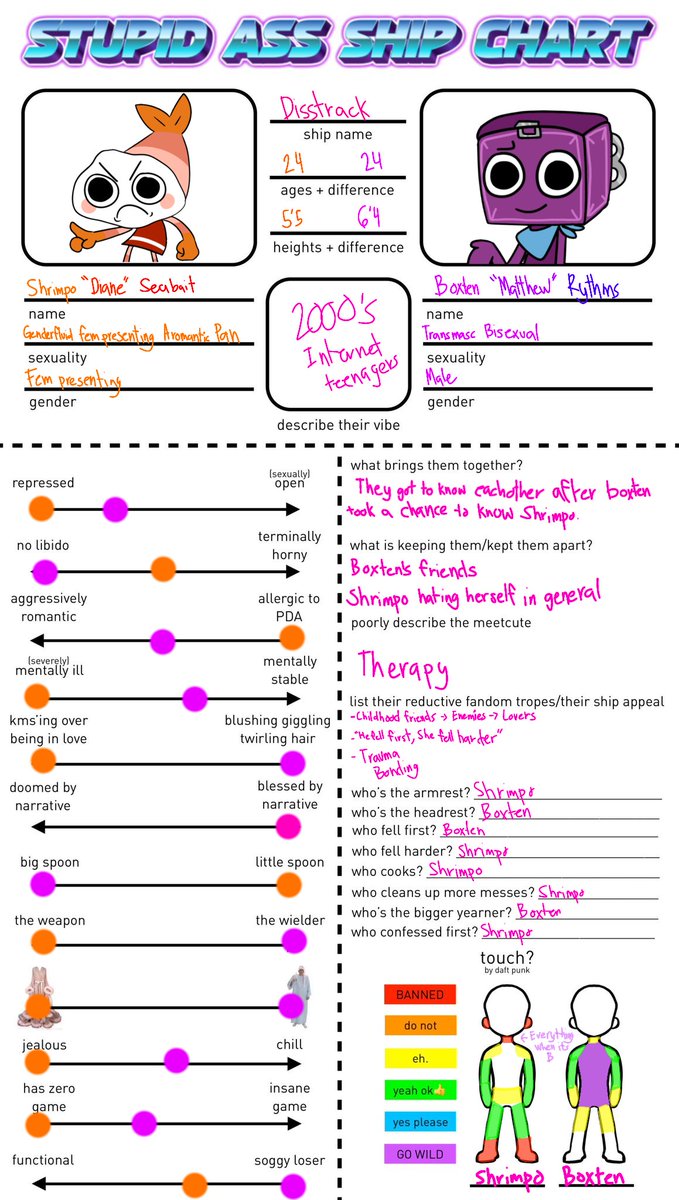 STUPID ASS SHIP CHART
Disstrack
ship name
24 24
ages + difference
5'5 6'4
heights + difference
Shrimpo "Diane" Seabait
name
Genderfluid fem presenting Aromantic Pan
sexuality
Fem presenting
gender
2000's
Internet
teenagers
describe their vibe
Boxten "Matthew" Rythms
name
Transmasc Bisexual
sexuality
Male
gender
repressed
(sexually)
open
no libido
terminally
horny
aggressively
romantic
allergic to
PDA
(severely)
mentally ill
mentally
stable
kms'ing over
being in love
blushing giggling
twirling hair
doomed by
narrative
blessed by
narrative
big spoon
little spoon
the weapon
the wielder
jealous
chill
has zero
game
insane
game
functional
soggy loser
what brings them together?
They got to know eachother after boxten
took a chance to know Shrimpo.
what is keeping them/kept them apart?
Boxten's friends
Shrimpo hating herself in general
poorly describe the meetcute
Therapy
list their reductive fandom tropes/their ship appeal
-Childhood friends → Enemies → Lovers
-"He fell first, She fell harder"
- Trauma
Bonding
who's the armrest? Shrimpo
who's the headrest? Boxten
who fell first? Boxten
who fell harder? Shrimpo
who cooks? Shrimpo
who cleans up more messes? Shrimpo
who's the bigger yearner? Boxten
who confessed first? Shrimpo
touch?
by daft punk
BANNED
do not
eh.
yeah ok👍
yes please
GO WILD
← Everything
when its
B
Shrimpo Boxten